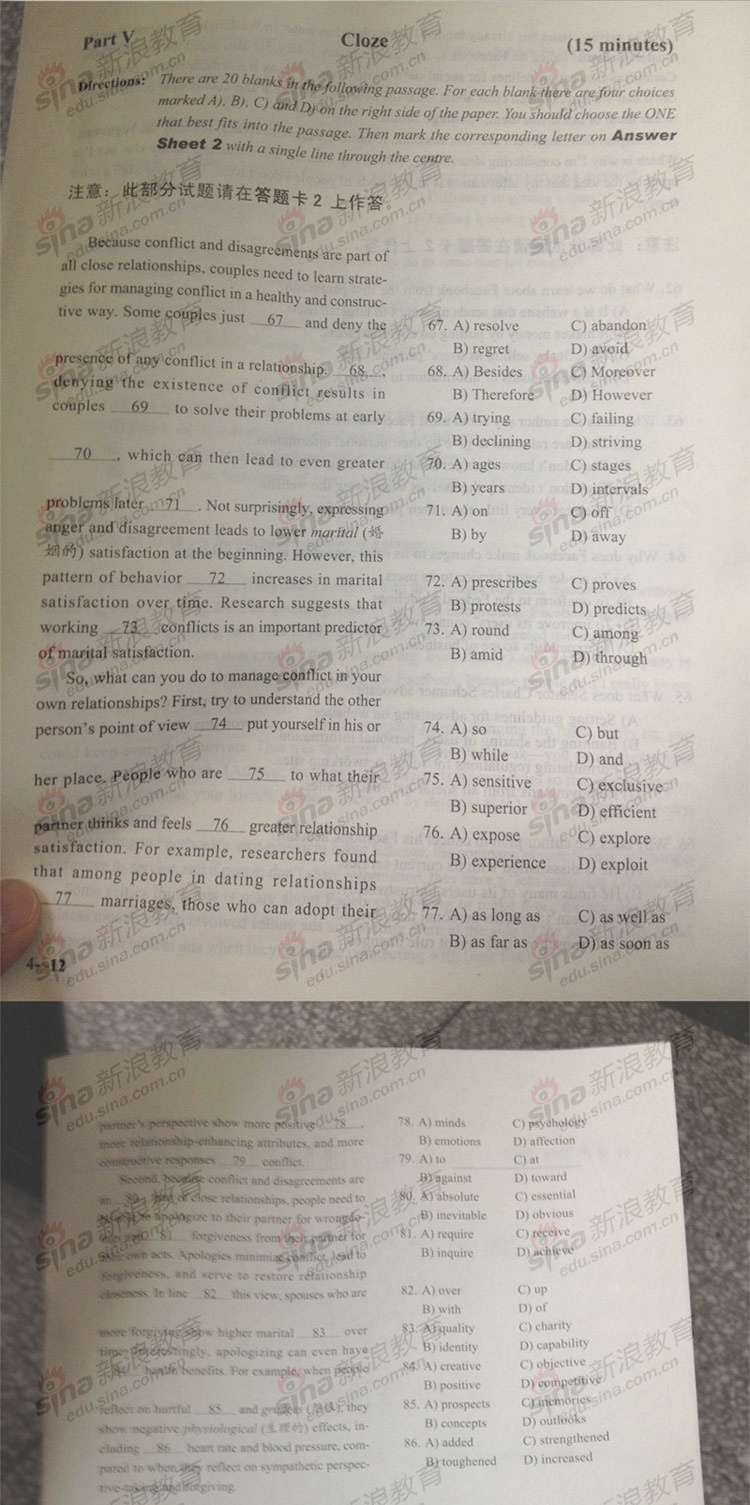 Part V Cloze (15 minutes)
Directions: There are 20 blanks in the following passage. For each blank there are four choices
marked A), B), C) and D) on the right side of the paper. You should choose the ONE
that best fits into the passage. Then mark the corresponding letter on Answer
Sheet 2 with a single line through the centre.
注意：此部分试题请在答题卡 2 上作答。
Because conflict and disagreements are part of
all close relationships, couples need to learn strate-
gies for managing conflict in a healthy and construc-
tive way. Some couples just 67 and deny the
presence of any conflict in a relationship. 68 ,
denying the existence of conflict results in
couples 69 to solve their problems at early
70 , which can then lead to even greater
problems later 71 . Not surprisingly, expressing
anger and disagreement leads to lower marital (婚
姻的) satisfaction at the beginning. However, this
pattern of behavior 72 increases in marital
satisfaction over time. Research suggests that
working 73 conflicts is an important predictor
of marital satisfaction.
So, what can you do to manage conflict in your
own relationships? First, try to understand the other
person's point of view 74 put yourself in his or
her place. People who are 75 to what their
partner thinks and feels 76 greater relationship
satisfaction. For example, researchers found
that among people in dating relationships
77 marriages, those who can adopt their
67. A) resolve C) abandon
B) regret D) avoid
68. A) Besides C) Moreover
B) Therefore D) However
69. A) trying C) failing
B) declining D) striving
70. A) ages C) stages
B) years D) intervals
71. A) on C) off
B) by D) away
72. A) prescribes C) proves
B) protests D) predicts
73. A) round C) among
B) amid D) through
74. A) so C) but
B) while D) and
75. A) sensitive C) exclusive
B) superior D) efficient
76. A) expose C) explore
B) experience D) exploit
77. A) as long as C) as well as
B) as far as D) as soon as
4-12
partner's perspective show more positive 78 ,
more relationship-enhancing attributes, and more
constructive responses 79 conflict.
Second, because conflict and disagreements are
an 80 part of close relationships, people need to
be able to apologize to their partner for wrongdo-
ing and 81 forgiveness from their partner for
their own acts. Apologies minimize conflict, lead to
forgiveness, and serve to restore relationship
closeness. In line 82 this view, spouses who are
more forgiving show higher marital 83 over
time. Interestingly, apologizing can even have
84 health benefits. For example, when people
reflect on hurtful 85 and grudges (怨恨), they
show negative physiological (生理的) effects, in-
cluding 86 heart rate and blood pressure, com-
pared to when they reflect on sympathetic perspec-
tive-taking and forgiving.
78. A) minds C) psychology
B) emotions D) affection
79. A) to C) at
B) against D) toward
80. A) absolute C) essential
B) inevitable D) obvious
81. A) require C) receive
B) inquire D) achieve
82. A) over C) up
B) with D) of
83. A) quality C) charity
B) identity D) capability
84. A) creative C) objective
B) positive D) competitive
85. A) prospects C) memories
B) concepts D) outlooks
86. A) added C) strengthened
B) toughened D) increased
sina新浪教育
edu.sina.com.cn